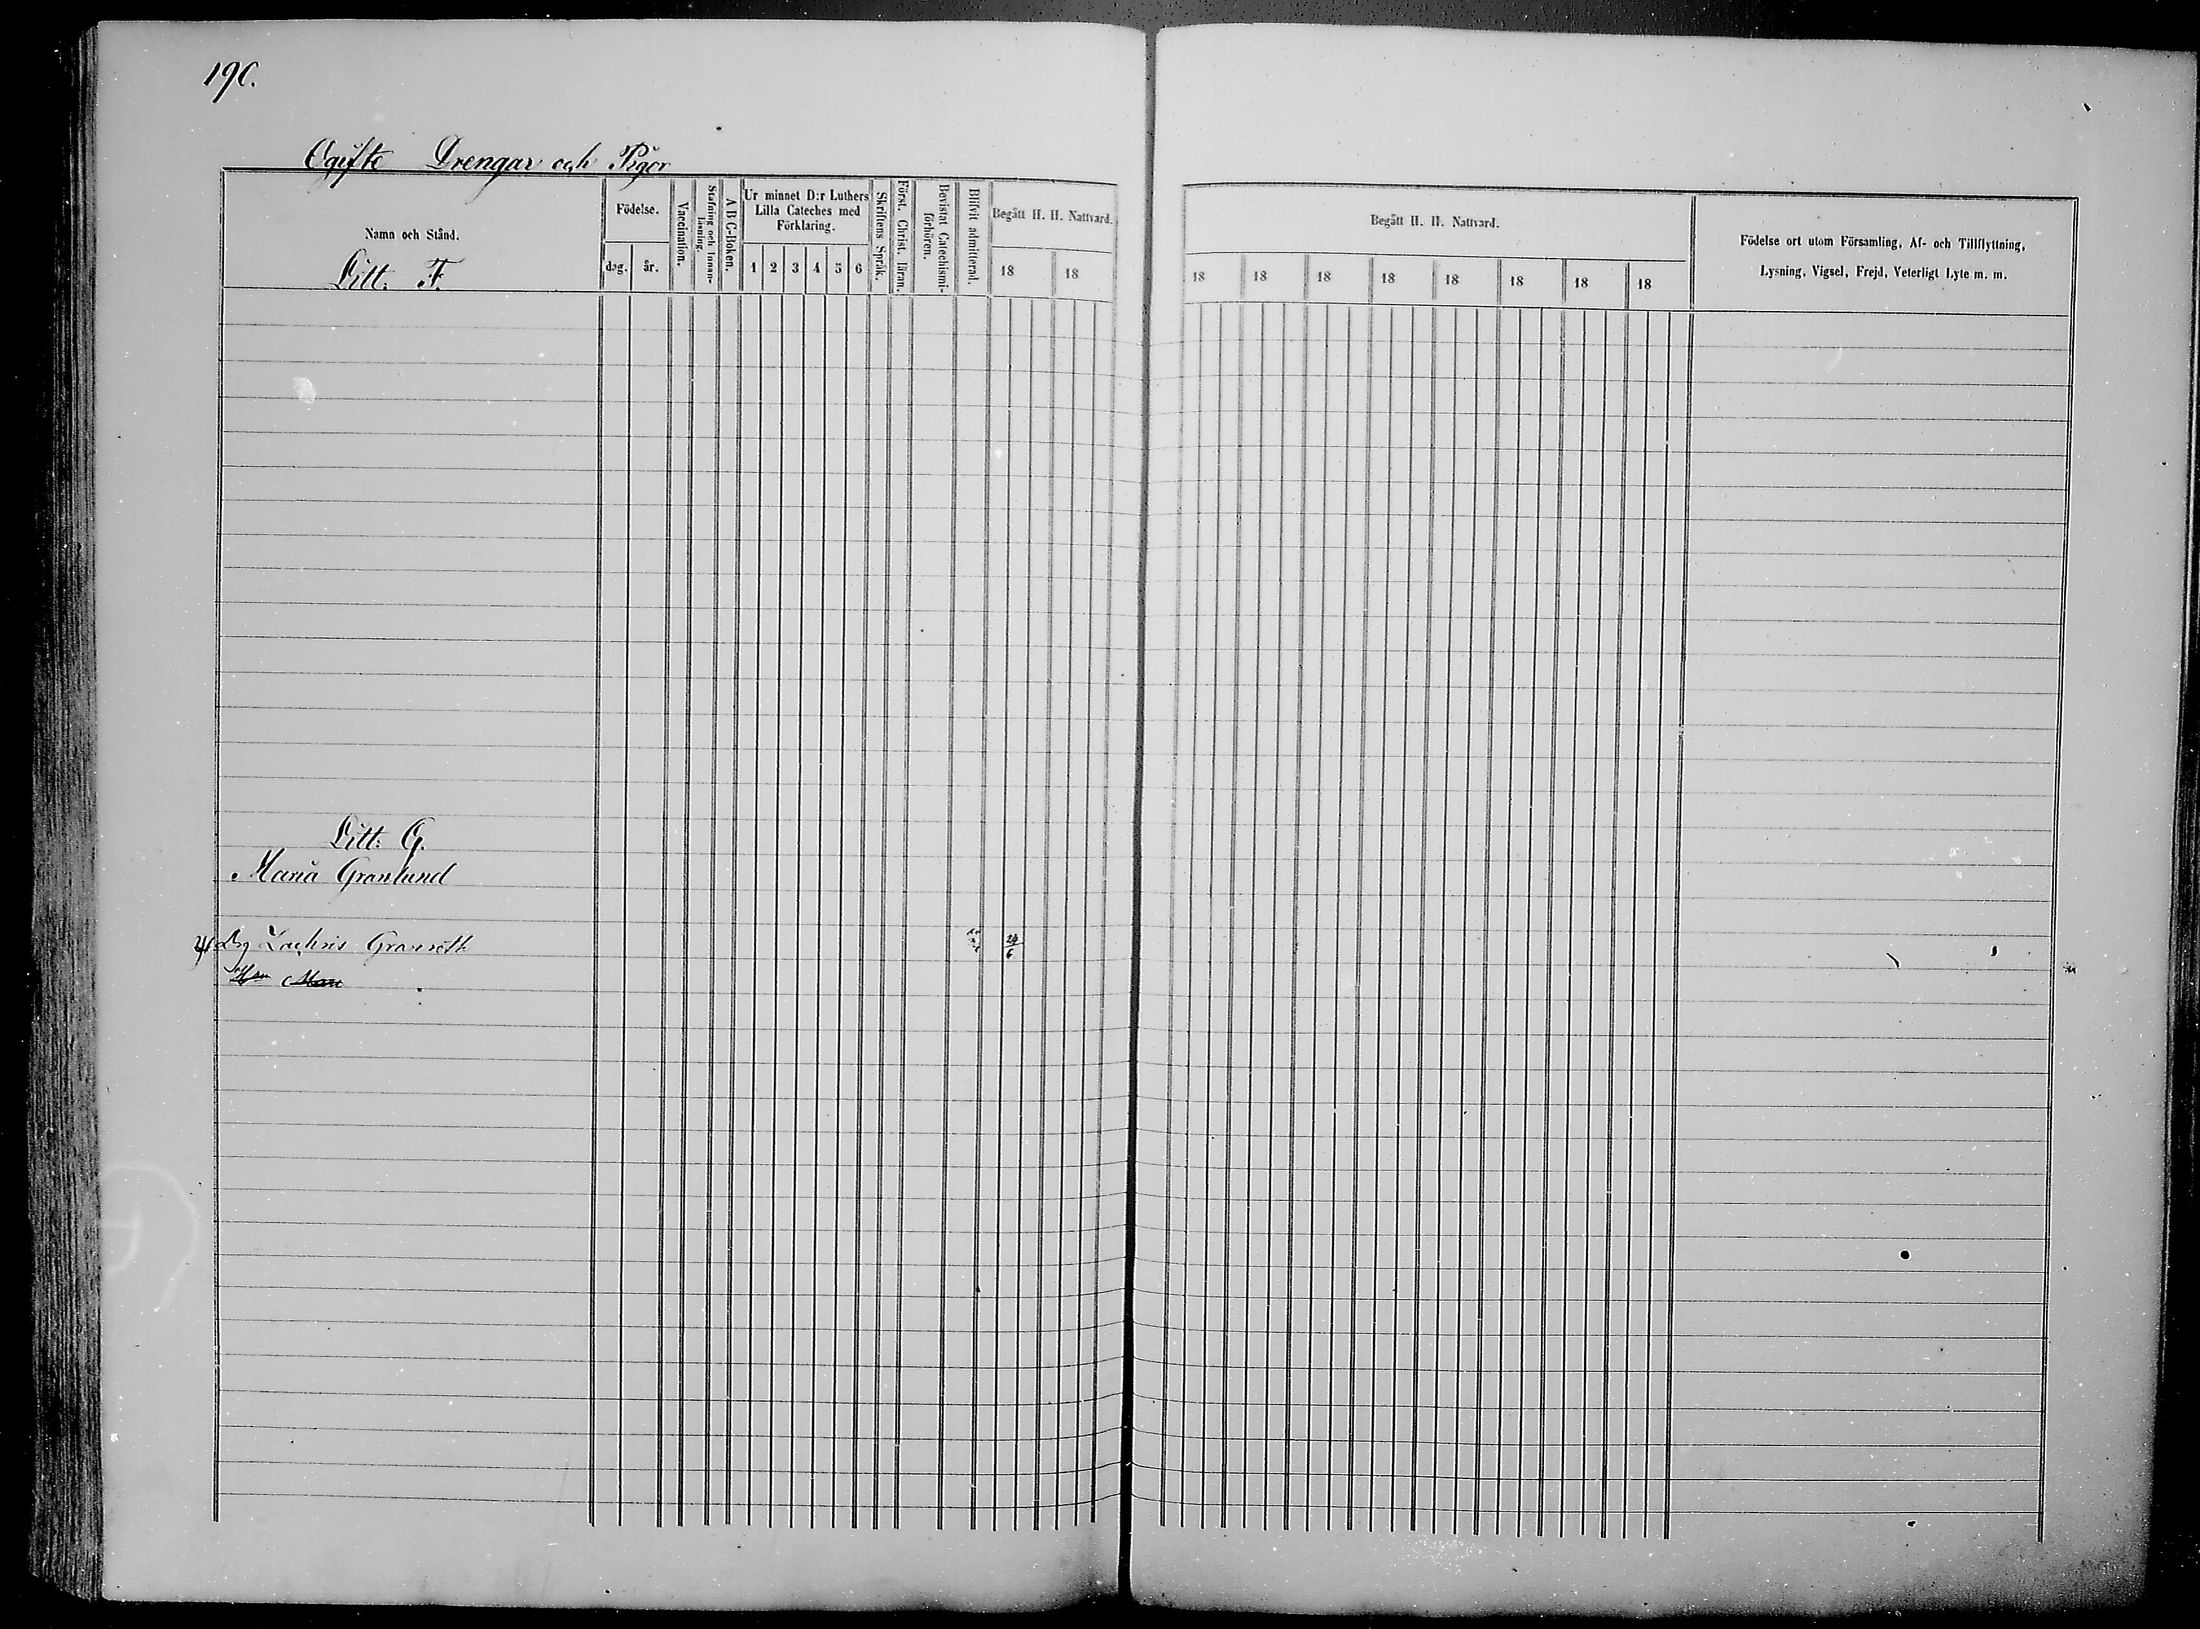 190.
Ogifte Drengar och Pigor
Namn och Stånd.
Litt. F.
Födelse.
dag. år.
Vaccination.
Stafning och Innan-
läsning.
A B C-Boken.
Ur minnet D:r Luthers
Lilla Cateches med
Förklaring.
1 2 3 4 5 6
Skriftens Språk.
Först. Christ. läran.
Bevistat Catechismi-
förhören.
Blifvit admitterad.
Begått H. H. Nattvard.
18 18
Begått H. H. Nattvard.
18 18 18 18 18 18 18 18
Födelse ort utom Församling, Af- och Tillflyttning,
Lysning, Vigsel, Frejd, Veterligt Lyte m. m.
Litt: G.
Maria Granlund
Drg Zachris Granroth 24/6